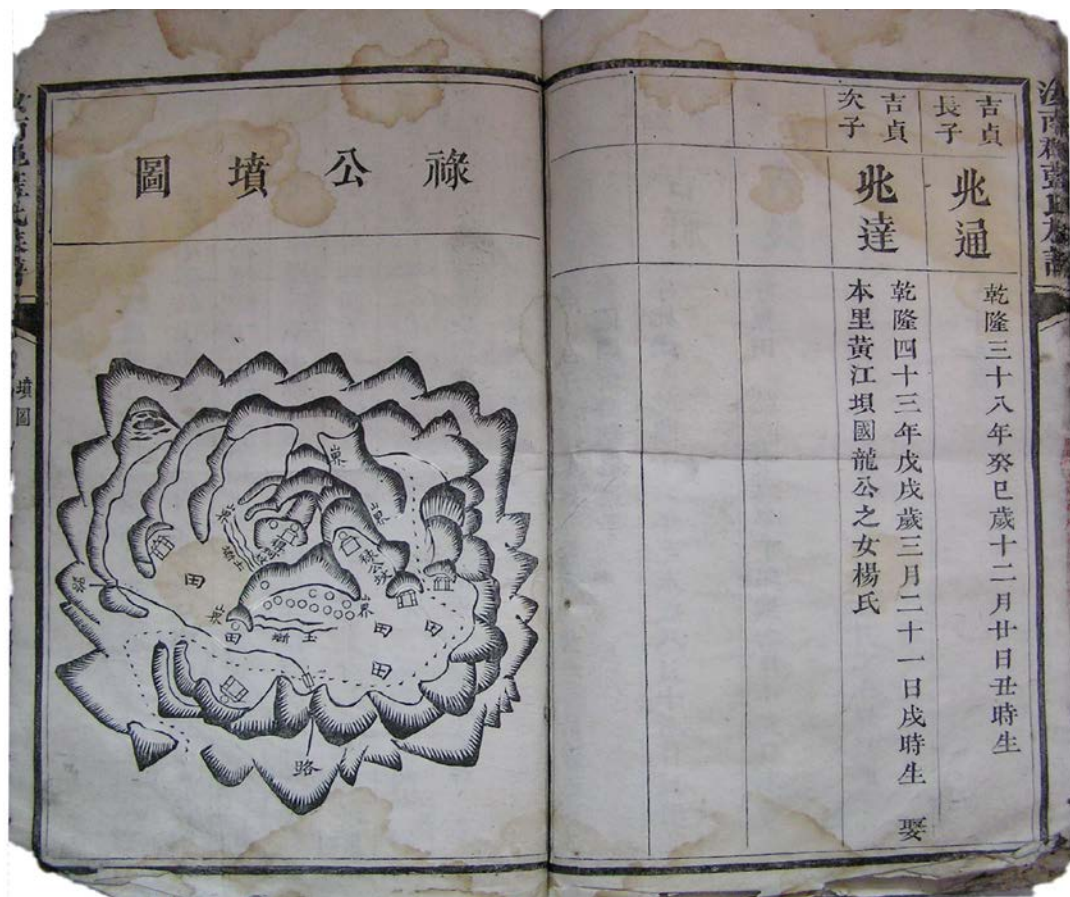 汝南郡藍氏族譜
吉貞
長子
兆通
乾隆三十八年癸巳歲十二月廿日丑時生
吉貞
次子
兆達
乾隆四十三年戊戌歲三月二十一日戌時生 娶
本里黃江垻國龍公之女楊氏
祿公墳圖
田
田
田
田
田
路
墳圖